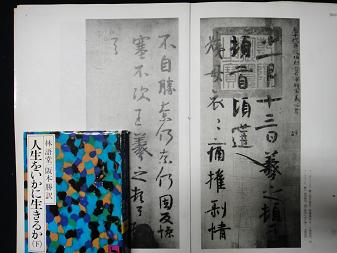 十一月十三日羲之頓首
頓首頃遘
姨母哀〻痛摧剥情
不自勝奈何奈何因反惨
塞不次王羲之頓首頓
首
林語堂 阪本勝訳
人生をいかに生きるか(下)